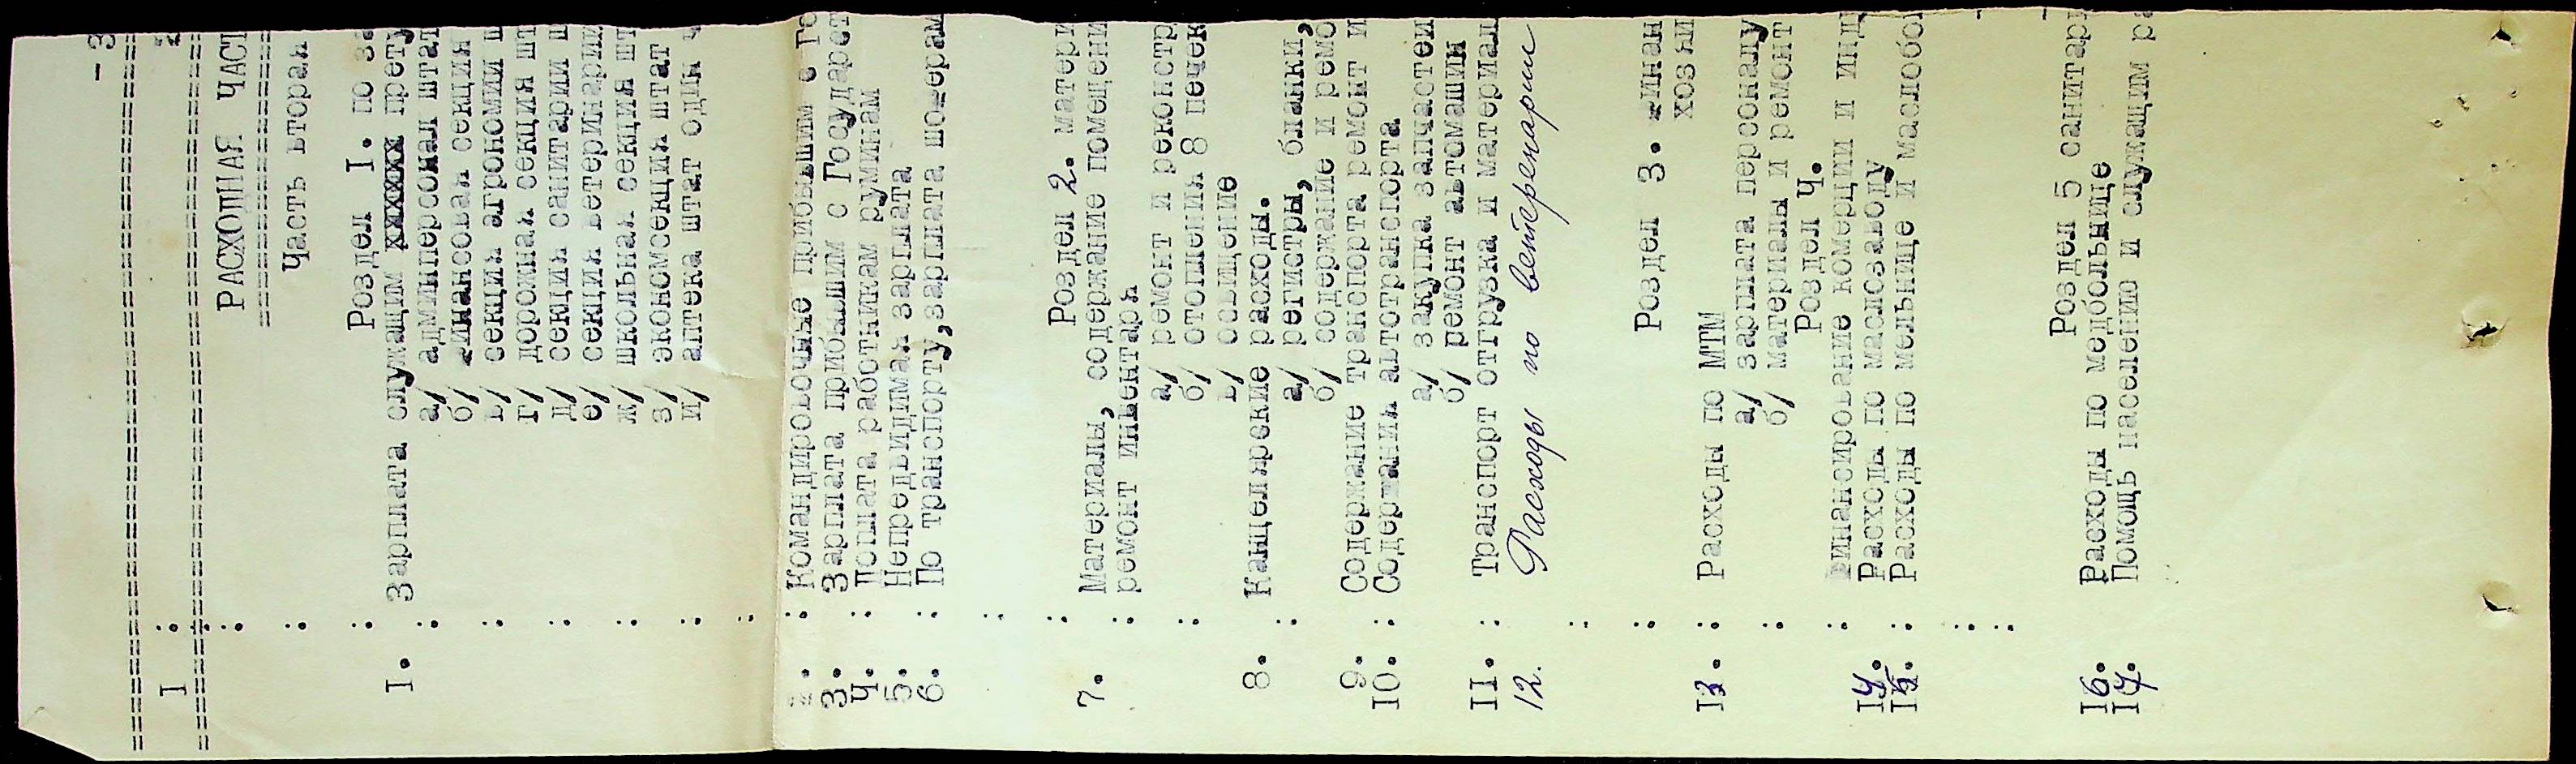 - 3
I : 2
РАСХОДНАЯ ЧАСТ
Часть вторая
Роздел I. по за
I. Зарплата служащим прету
а/ админперсонал штат
б/ финансовая секция
в/ секция агрономии ш
г/ дорожная секция шт
д/ секция санитарии ш
е/ секция ветеринарии
ж/ школьная секция шт
з/ экономсекция штат
и/ аптека штат один ч
2. : Командировочные прибывшим с Го
3. Зарплата прибывшим с Государст
4. : Доплата работникам румынам
5. Непредвидимая зарплата
6. : По транспорту,зарплата шоферам
Роздел 2. матери
7. Материалы, содержание помещени
: ремонт инвентаря
а/ ремонт и реконстр
б/ отопления 8 печек
в/ освищение
8. Канцелярские расходы.
: а/ регистры, бланки,
б/ содержание и ремо
9. Содержание транспорта ремонт и
10. : Содержания автотранспорта
а/ закупка запчастей
б/ ремонт автомашин
II. : Транспорт отгрузка и материал
12. Расходы по ветеренарии
Роздел 3. финан
хозяй
13. : Расходы по МТМ
а/ зарплата персоналу
: б/ материалы и ремонт
Роздел 4.
: Финансирование комерции и инду
14. Расходы по маслозаводу
15. : Расходы по мельнице и маслобо
Роздел 5 санитари
16. Расходы по медбольнице
17. Помощь населению и служащим ра